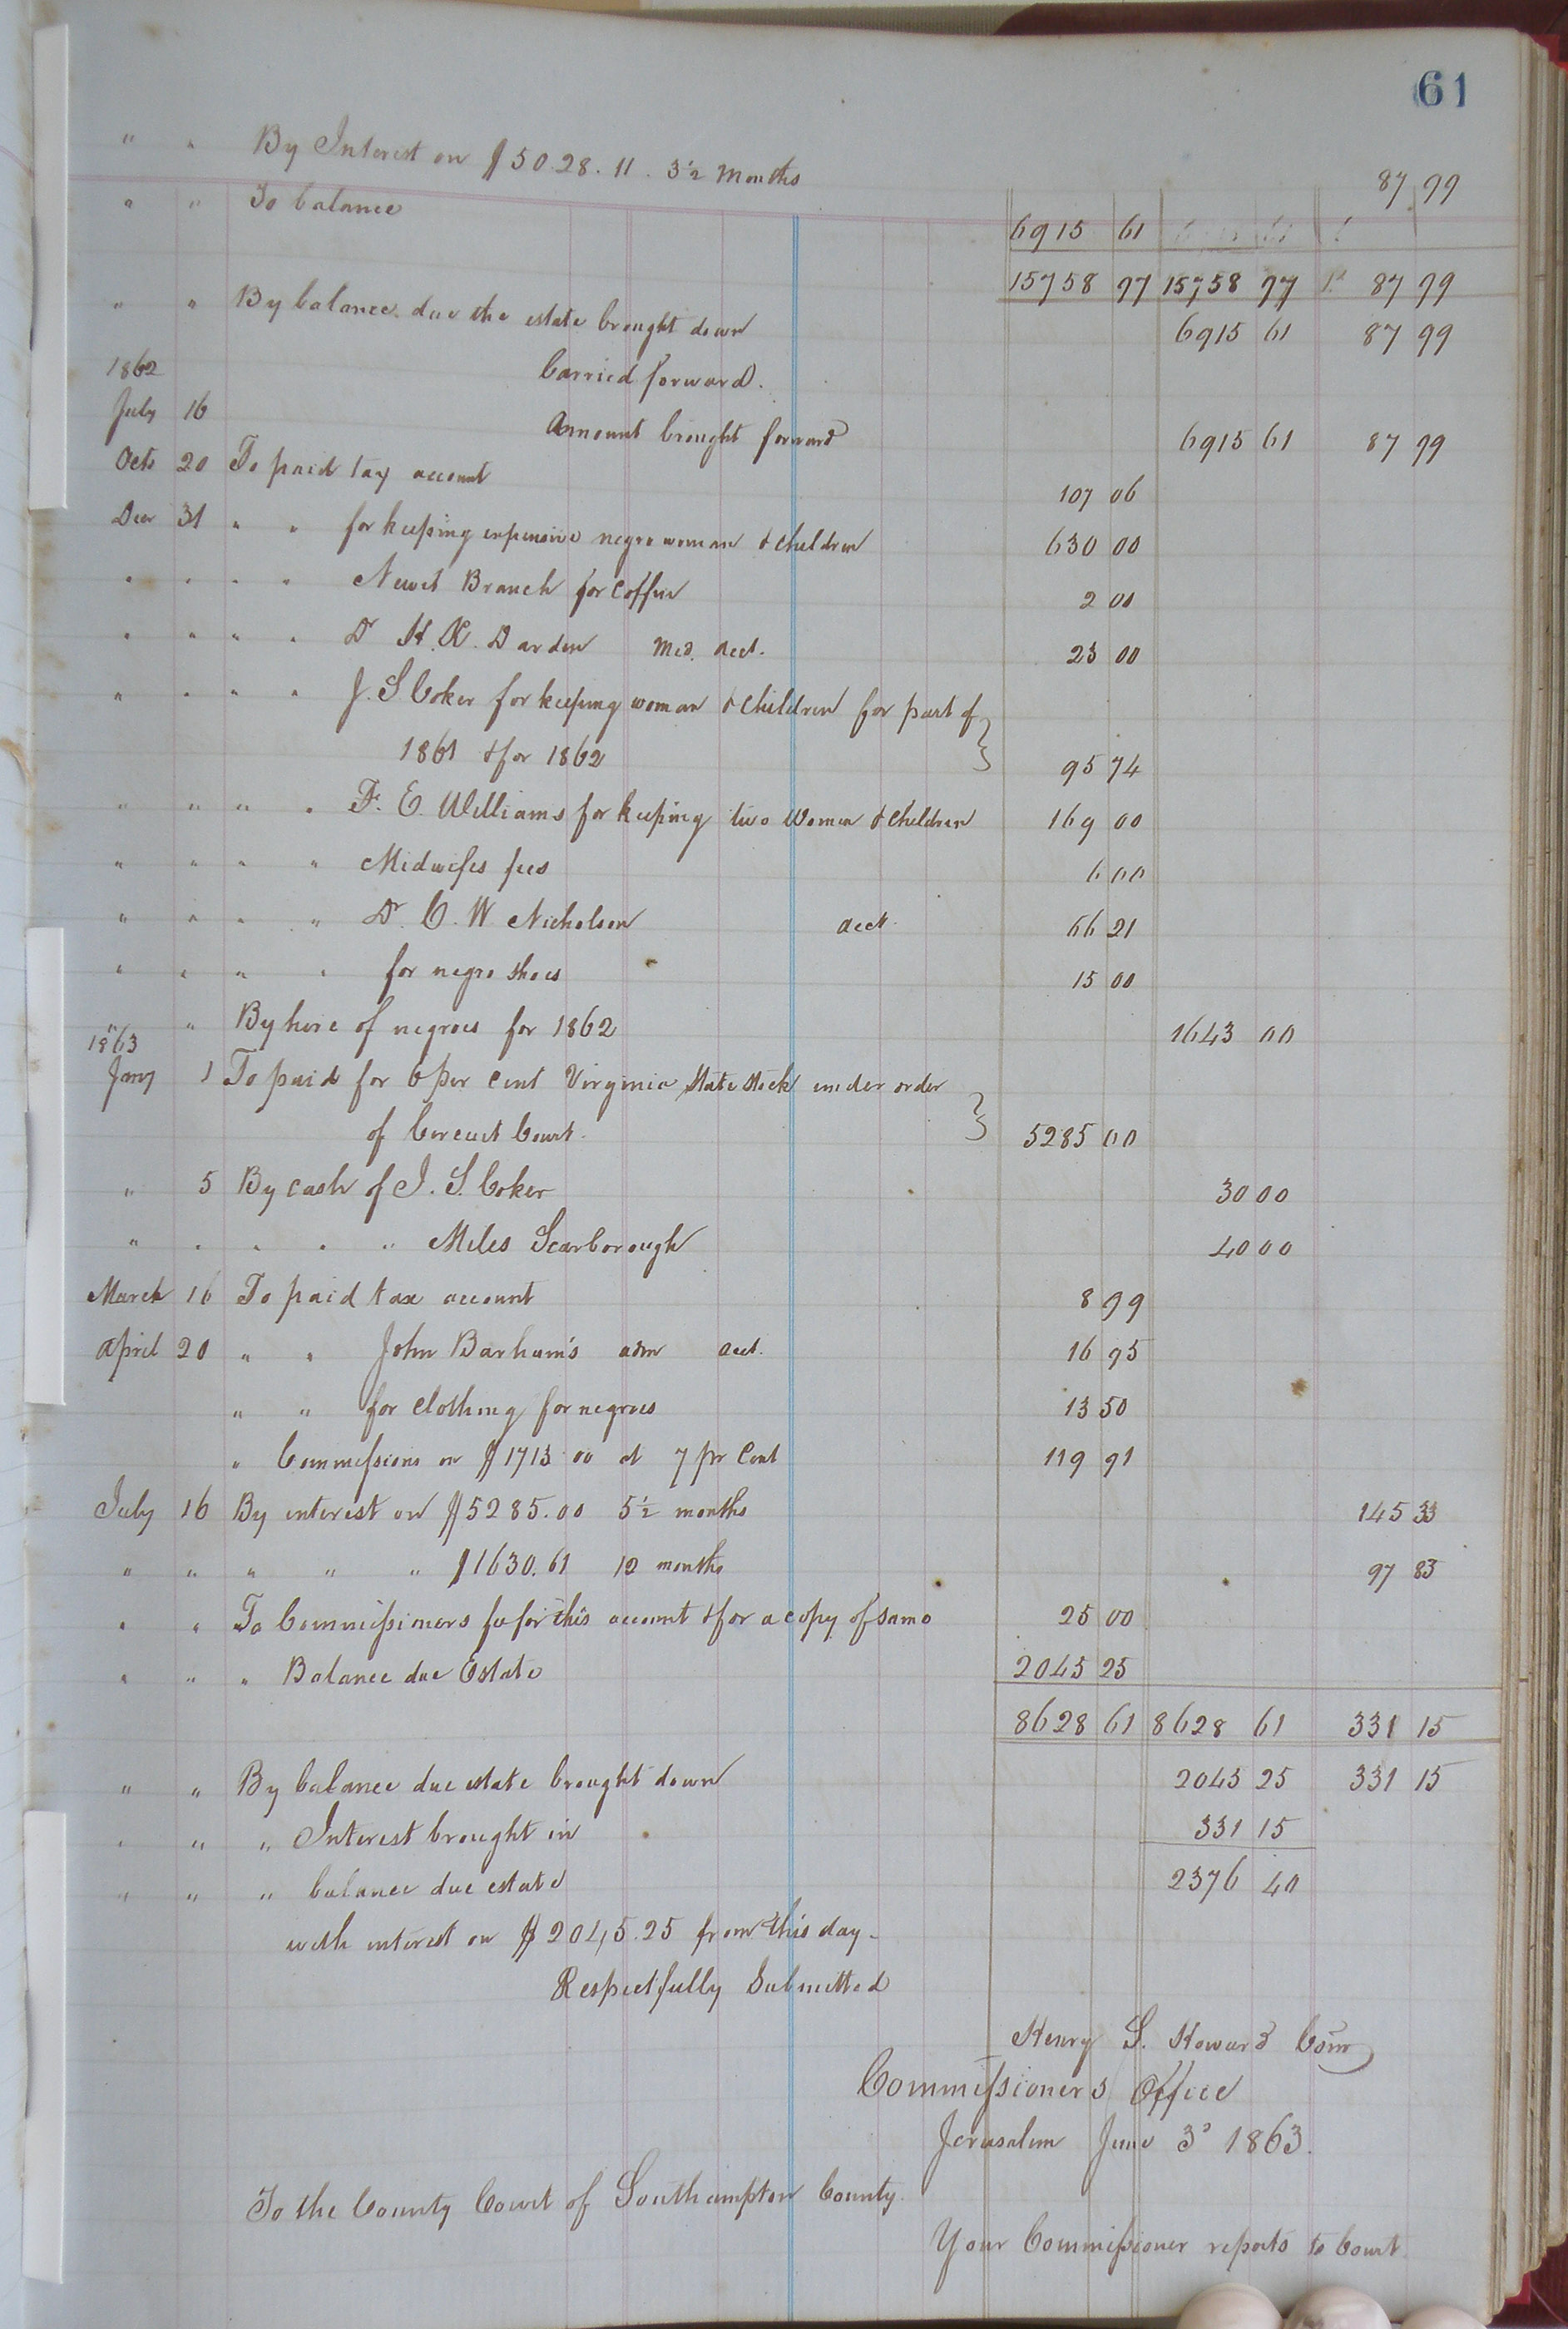 61
" " By Interest on $5028.11. 3½ Months 87 99
" " To balance 6915 61
15758 97 15758 97 87 99
" " By balance due the estate brought down 6915 61 87 99
1862 Carried forward.
July 16 Amount brought forward 6915 61 87 99
Octo 20 To paid tax account 107 06
Decr 31 " " for keeping expensive negro woman & children 630 00
" " " " Newit Branch for Coffin 2 00
" " " " Dr H. K. Darden Med. Acct. 23 00
" " " " J. S. Coker for keeping woman & children for part of
1861 & for 1862 95 74
" " " " F. E. Williams for keeping two women & children 169 00
" " " " Midwifes fees 6 00
" " " " Dr C. W. Nicholson acct. 66 21
" " " " for negro shoes 15 00
" " By hire of negroes for 1862 1643 00
1863
Jany 1 To paid for 6 per cent Virginia State stock under order
of Circuit Court. 5285 00
" 5 By cash of J. S. Coker 30 00
" " " " " Miles Scarborough 40 00
March 16 To paid tax account 8 99
April 20 " " John Barham's adm acct. 16 95
" " for clothing for negroes 13 50
" Commissions on $1713.00 at 7 pr Cent 119 91
July 16 By interest on $5285.00 5½ months 145 33
" " " " " $1630.61 12 months 97 83
" " To Commissioners fee for this account & for a copy of same 25 00
" " " Balance due Estate 2045 25
8628 61 8628 61 331 15
" " By balance due estate brought down 2045 25 331 15
" " " Interest brought in 331 15
" " " balance due estate 2376 40
with interest on $2045.25 from this day.
Respectfully Submitted
Henry S. Howard Com
Commissioners Office
Jerusalem June 3d 1863.
To the County Court of Southampton County.
Your Commissioner reports to Court